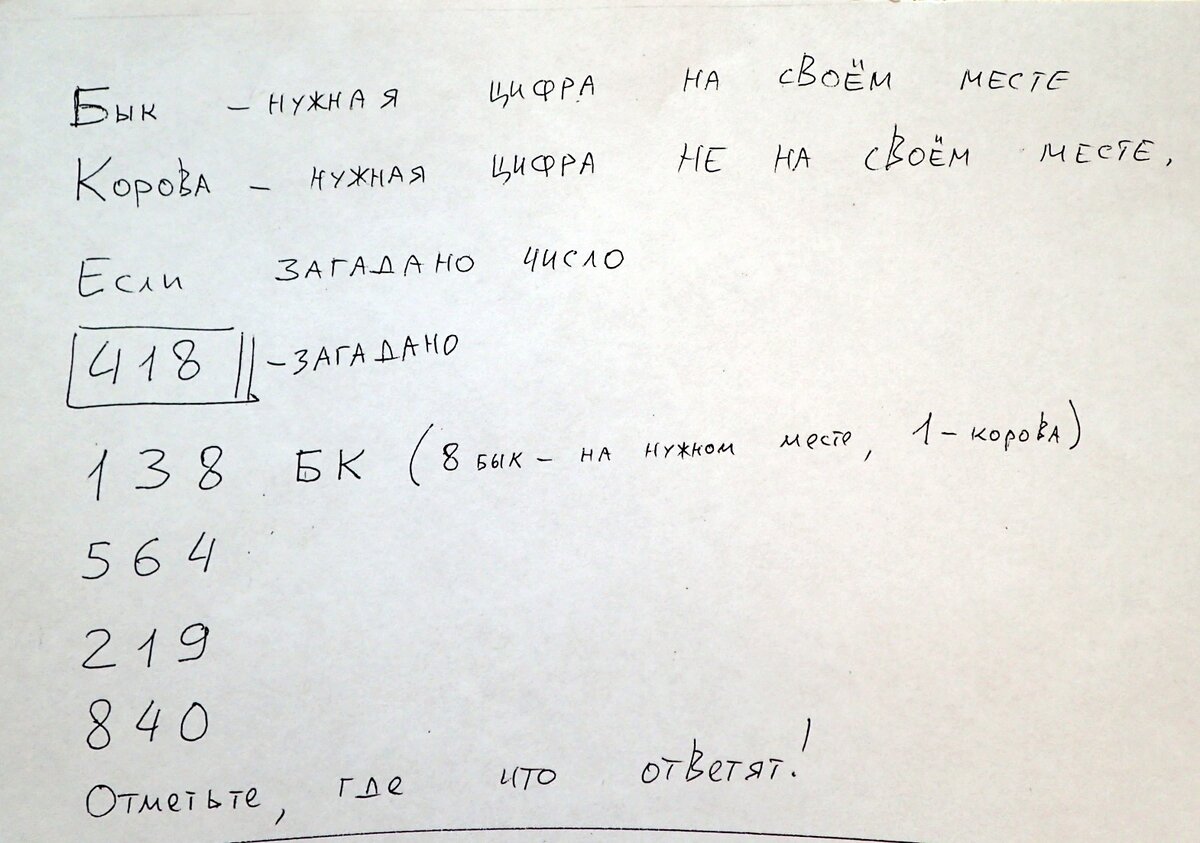 Бык – нужная цифра на своём месте
Корова – нужная цифра не на своём месте.
Если загадано число
418 – загадано
138 БК (8 бык – на нужном месте, 1 – корова)
564
219
840
Отметьте, где что ответят!